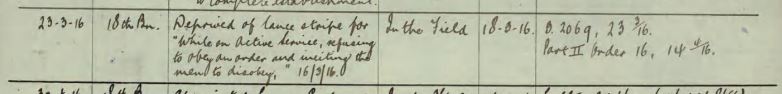 complete establishment.
23-3-16 18th Bn. Deprived of lance stripe for In the Field 18-3-16. B. 2069, 23 3/16.
"While on Active Service, refusing Part II Order 16, 14 4/16.
to obey an order and inciting the
men to disobey," 16/3/16.